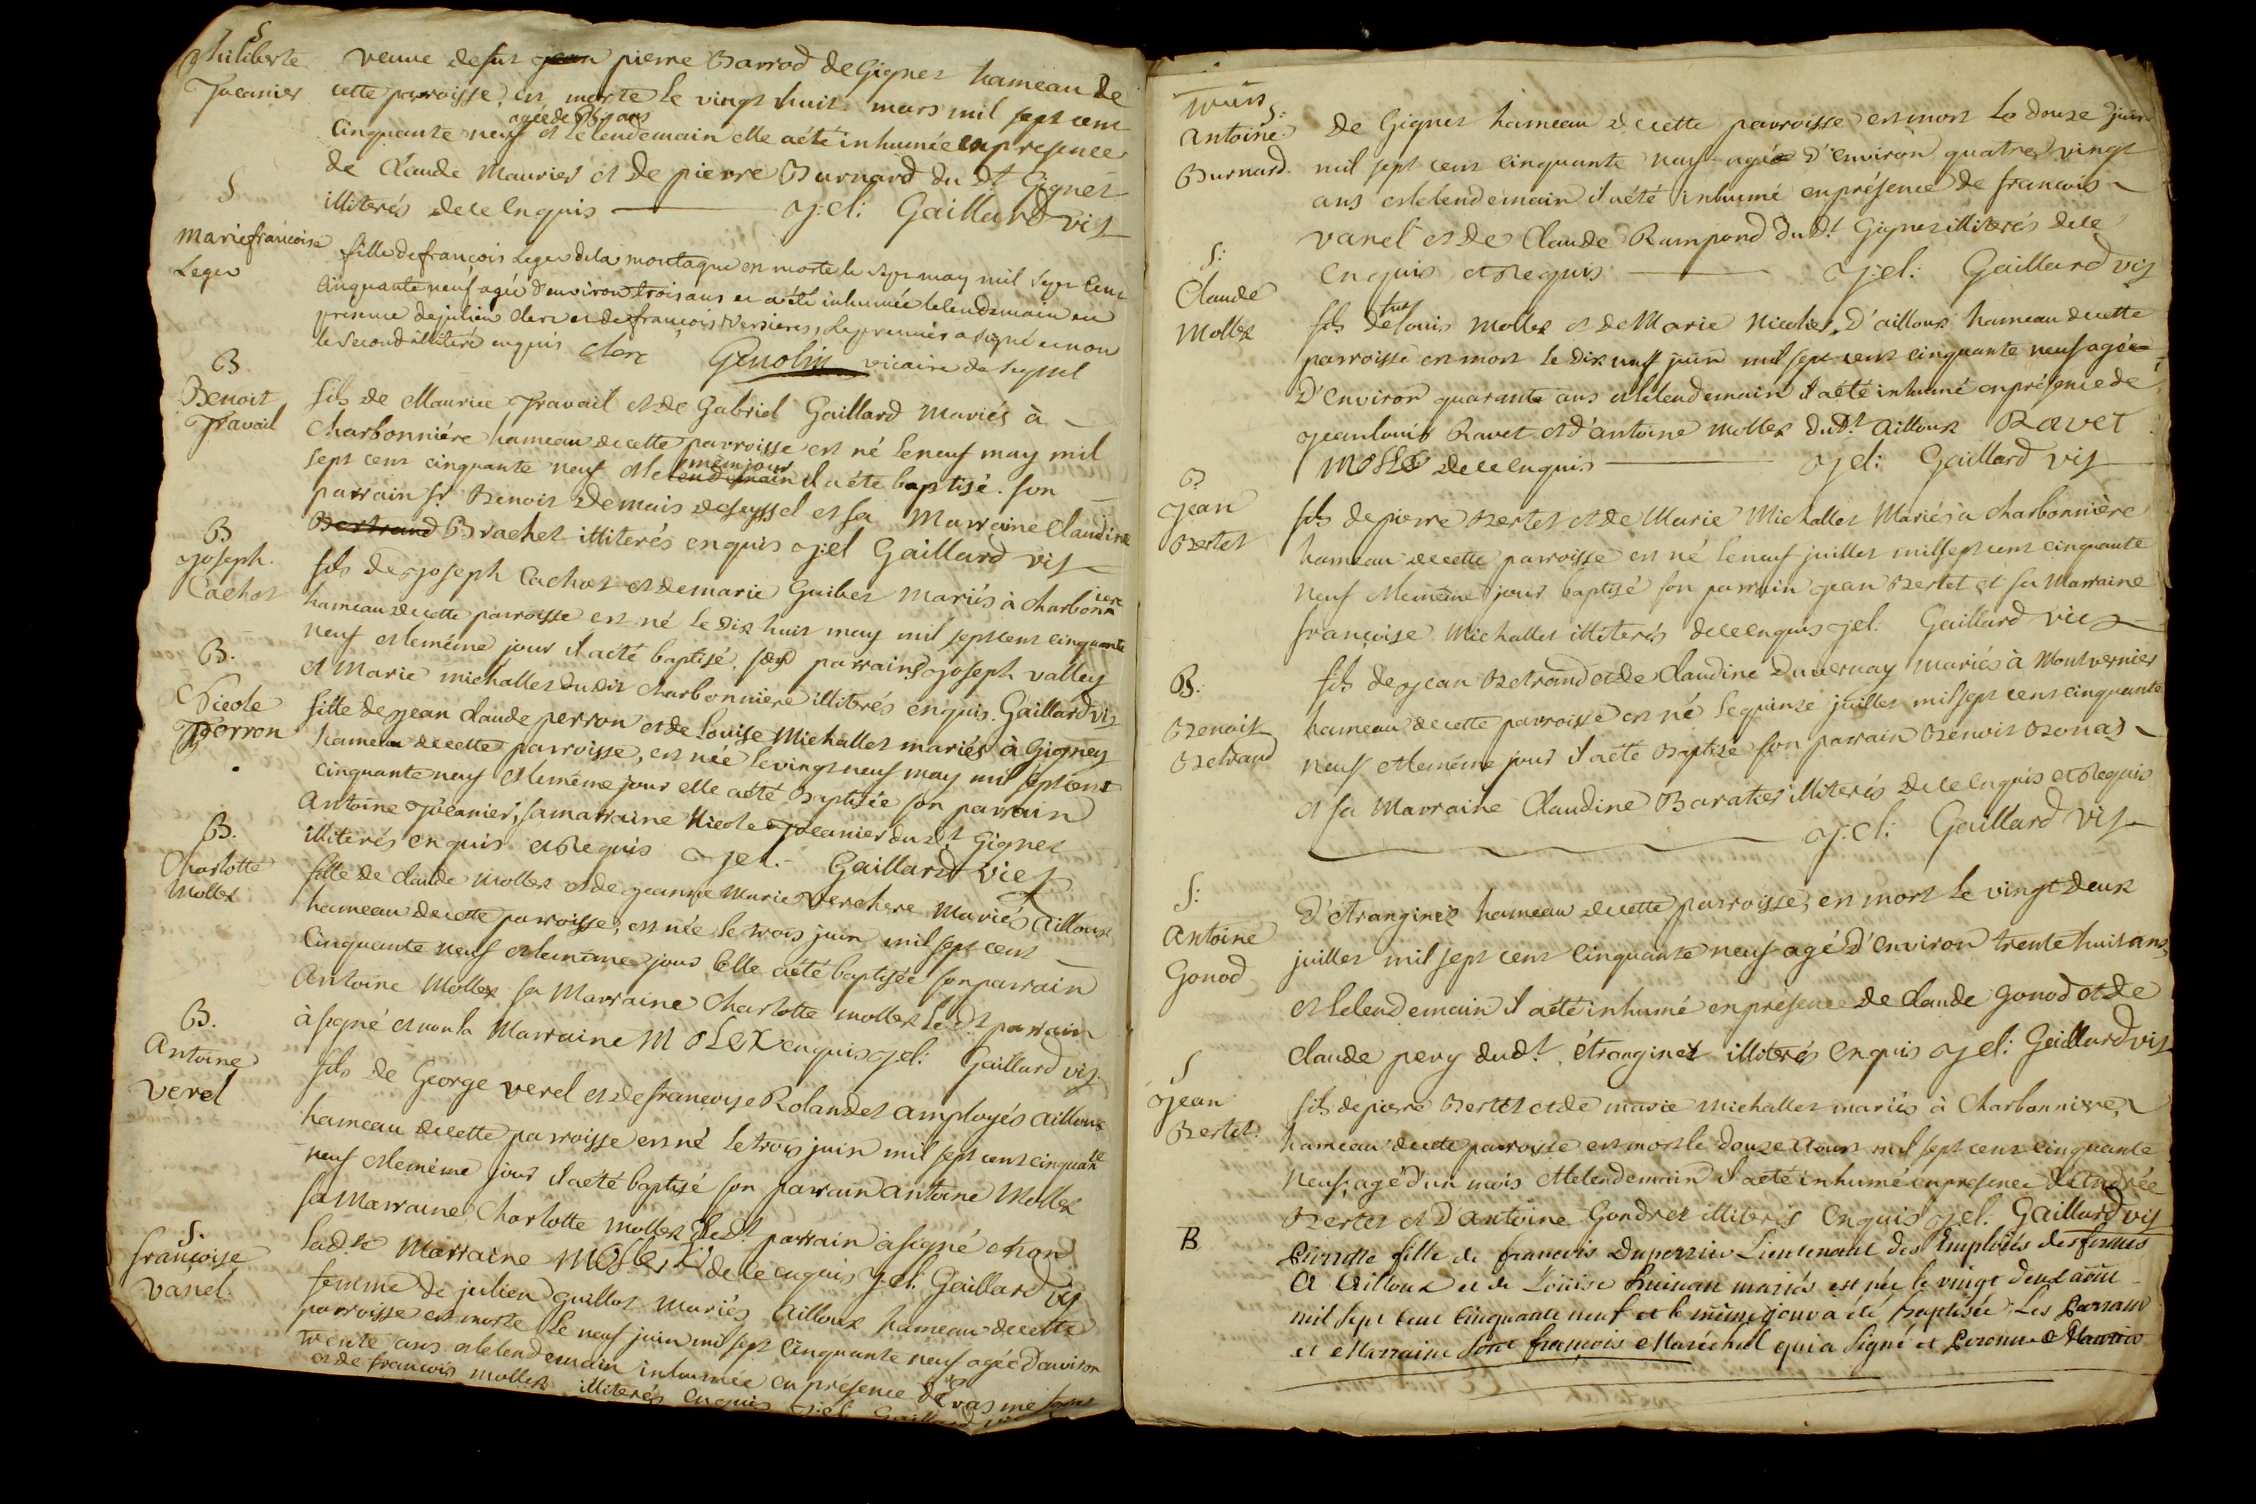 S
Philiberte
Jacanier
veuve de fut jean pierre Barrod de Gignez hameau de
cette parroisse, est morte le vingt huit mars mil sept cent
agée de ans
Cinquante neuf et le lendemain elle a été inhumée en presence
de Claude Maurier et de pierre Burnard du dt Gignez
illiterés de ce Enquis j: cl: Gaillard vic
S
Marie francoise
Leger
fille de francois Leger de la montagne en morte le sept may mil sept Cent
Cinquante neuf agée d'environ trois ans et a été inhumée le lendemain en
presence de julien Clerc et de francois Versieres, le premier a signé et non
le Second illitéré enquis Clerc Genolin vicaire de Seyssel
B
Benoit
Travail
fils de Maurice Travail et de Gabriel Gaillard Mariés à
Charbonniére hameau de cette parroisse est né le neuf may mil
même jour
sept cent cinquante neuf et le lendemain il a été baptisé. son
parrain Sr. Benoit Demais de Seyssel et sa Marraine Claudine
Bertrand Brachet illiterés enquis j: cl Gaillard vic
B
joseph
Cachot
fils de joseph Cachot et de marie Guibet Mariés à charbonniere
hameau de cette parroisse est né le dix huit may mil sept cent cinquante
neuf et le même jour il a été baptisé. ses parrains joseph valley
et Marie michallet du dit charbonniere illiterés enquis. Gaillard vic
B.
Nicole
Perron
fille de jean Claude perron et de Louise Michallet mariés à Gignez
hameau de cette parroisse, est née le vingt neuf may mil sept cent
cinquante neuf et le même jour elle a été Baptisée son parrain
Antoine Jacanier, sa marraine Nicole Jacanier du dt Gignez
illiterés enquis et Requis j cl: Gaillard vic
B.
Charlotte
Mollex
fille de Claude Mollex et de jeanne Marie Verchere Mariés Ailloux
hameau de cette parroisse, est née le trois juin mil sept cent
Cinquante neuf et le même jour Elle a été baptisée son parrain
Antoine Mollex sa Marraine Charlotte mollex le dt parrain
à signé et non la Marraine MOLEX enquis j cl: Gaillard vic
B.
Antoine
Verel
fils de George verel et de francoise Rolandet amployés Ailloux
hameau de cette parroisse est né le trois juin mil sept cent cinquante
neuf et le même jour il a été baptisé son parrain Antoine Mollex
sa Marraine Charlotte mollex le dt parrain à signé et non
lad. te Marraine MOLEX de ce enquis j. cl: Gaillard vic
S.
françoise
Vanel.
femme de julien guillot Mariés Ailloux hameau de cette
parroisse est morte le neuf juin mil sept Cinquante neuf agée d'environ
trente ans et le lendemain inhumée en présence de
et de francois mollex illiterés enquis j: cl Gaillard vic
S:
Antoine
Burnard.
De Gignez hameau de cette parroisse est mort le douze juin
mil sept cent cinquante neuf agée d'environ quatre vingt
ans et le lendemain il a été inhumé en présence de francois
vanel et de Claude Rampond du dt. Gignez illiterés de ce
Enquis et Requis j: cl: Gaillard vic
S:
Claude
Mollex
fut
fils de Louis Mollex et de Marie Nicolet, d'ailloux hameau de cette
parroisse est mort le dix neuf juin mil sept cent cinquante neuf agée
D'environ quarante ans et le lendemain il a été inhumé en présence de
jean louis Ravet et d'antoine Mollex du dt. ailloux RAVET
MOLEX de ce enquis j cl: Gaillard vic
B
jean
Bertet
fils de pierre Bertet et de Marie Michallet Mariés à charbonnière
hameau de cette parroisse est né le neuf juillet mil sept cent cinquante
neuf et le même jour baptisé son parrain jean Bertet et sa Marraine
françoise Michallet illiterés de ce enquis j cl: Gaillard vic
B.
Benoit
Betrand
fils de jean Betrand et de Claudine Duvernay Mariés à Montvernier
hameau de cette parroisse est né le quinze juillet mil sept cent cinquante
neuf et le même jour il a été Baptisé son parrain Benoit Bonas
et sa Marraine Claudine Baratier illiterés de ce Enquis et Requis
j. cl: Gaillard vic
S:
Antoine
Gonod
D'étranginez hameau de cette parroisse, est mort le vingt deux
juillet mil sept cent Cinquante neuf agé d'environ trente huit ans
et le lendemain il a été inhumé en presence de Claude Gonod et de
Claude pery du dt. étranginez illiterés enquis j cl: Gaillard vic
S
jean
Bertet.
fils de pierre Bertet et de marie Michallet mariés à Charbonniere,
hameau de cette parroisse est mort le douze aoust mil sept cent cinquante
neuf, agé d'un mois et le lendemain il a été inhumé en presence d'Andrée
Bertet et d'antoine Gondret illiterés Enquis j cl. Gaillard vic
B
Pierrotte fille de francois Duperrier Lieutenant des Emploïés des fermes
A Ailloux et de Loüise mariés est née le vingt deux août
mil sept Cent Cinquante neuf et le même jour a été Baptisée. Les Parrain
et Marraine sont françois Maréchal qui a signé et